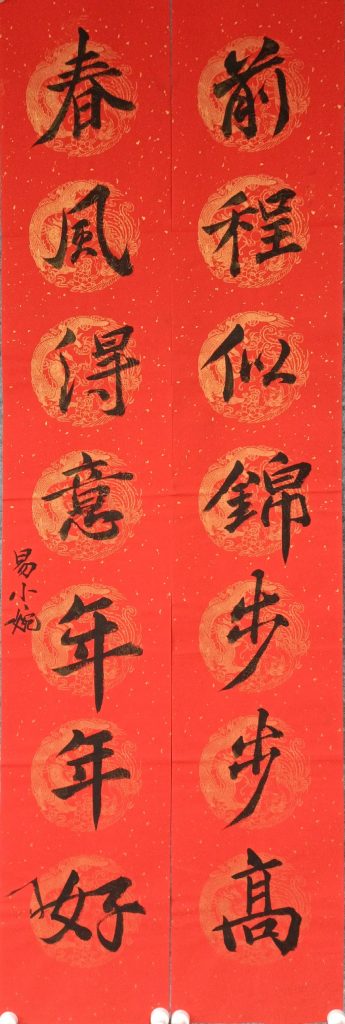 前程似錦步步高
春風得意年年好
易小婉